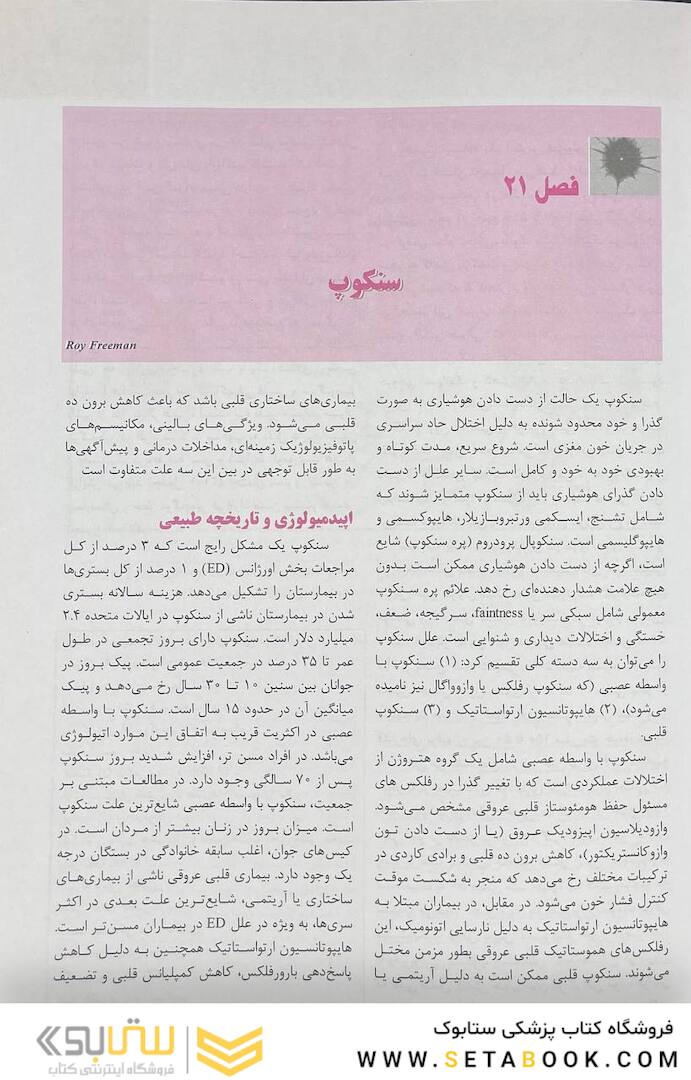 فصل ۲۱
سنکوپ
Roy Freeman
سنکوپ یک حالت از دست دادن هوشیاری به صورت
گذرا و خود محدود شونده به دلیل اختلال حاد سراسری
در جریان خون مغزی است. شروع سریع، مدت کوتاه و
بهبودی خود به خود و کامل است. سایر علل از دست
دادن گذرای هوشیاری باید از سنکوپ متمایز شوند که
شامل تشنج، ایسکمی ورتبروبازیلار، هایپوکسمی و
هایپوگلیسمی است. سنکوپال پرودروم (پره سنکوپ) شایع
است، اگرچه از دست دادن هوشیاری ممکن است بدون
هیچ علامت هشدار دهنده‌ای رخ دهد. علائم پره سنکوپ
معمولی شامل سبکی سر یا faintness، سرگیجه، ضعف،
خستگی و اختلالات دیداری و شنوایی است. علل سنکوپ
را می‌توان به سه دسته کلی تقسیم کرد: (۱) سنکوپ با
واسطه عصبی (که سنکوپ رفلکس یا وازوواگال نیز نامیده
می‌شود)، (۲) هایپوتانسیون ارتواستاتیک و (۳) سنکوپ
قلبی.
سنکوپ با واسطه عصبی شامل یک گروه هتروژن از
اختلالات عملکردی است که با تغییر گذرا در رفلکس های
مسئول حفظ هومئوستاز قلبی عروقی مشخص می‌شود.
وازودیلاسیون اپیزودیک عروق (یا از دست دادن تون
وازوکانستریکتور)، کاهش برون ده قلبی و برادی کاردی در
ترکیبات مختلف رخ می‌دهد که منجر به شکست موقت
کنترل فشار خون می‌شود. در مقابل، در بیماران مبتلا به
هایپوتانسیون ارتواستاتیک به دلیل نارسایی اتونومیک، این
رفلکس‌های هموستاتیک قلبی عروقی بطور مزمن مختل
می‌شوند. سنکوپ قلبی ممکن است به دلیل آریتمی یا
بیماری‌های ساختاری قلبی باشد که باعث کاهش برون ده
قلبی می‌شود. ویژگی‌های بالینی، مکانیسم‌های
پاتوفیزیولوژیک زمینه‌ای، مداخلات درمانی و پیش‌آگهی‌ها
به طور قابل توجهی در بین این سه علت متفاوت است
اپیدمیولوژی و تاریخچه طبیعی
سنکوپ یک مشکل رایج است که ۳ درصد از کل
مراجعات بخش اورژانس (ED) و ۱ درصد از کل بستری‌ها
در بیمارستان را تشکیل می‌دهد. هزینه سالانه بستری
شدن در بیمارستان ناشی از سنکوپ در ایالات متحده ۲.۴
میلیارد دلار است. سنکوپ دارای بروز تجمعی در طول
عمر تا ۳۵ درصد در جمعیت عمومی است. پیک بروز در
جوانان بین سنین ۱۰ تا ۳۰ سال رخ می‌دهد و پیک
میانگین آن در حدود ۱۵ سال است. سنکوپ با واسطه
عصبی در اکثریت قریب به اتفاق این موارد اتیولوژی
می‌باشد. در افراد مسن تر، افزایش شدید بروز سنکوپ
پس از ۷۰ سالگی وجود دارد. در مطالعات مبتنی بر
جمعیت، سنکوپ با واسطه عصبی شایع‌ترین علت سنکوپ
است. میزان بروز در زنان بیشتر از مردان است. در
کیس‌های جوان، اغلب سابقه خانوادگی در بستگان درجه
یک وجود دارد. بیماری قلبی عروقی ناشی از بیماری‌های
ساختاری یا آریتمی، شایع‌ترین علت بعدی در اکثر
سری‌ها، به ویژه در علل ED در بیماران مسن‌تر است.
هایپوتانسیون ارتواستاتیک همچنین به دلیل کاهش
پاسخ‌دهی بارورفلکس، کاهش کمپلیانس قلبی و تضعیف
فروشگاه کتاب پزشکی ستابوک
WWW.SETABOOK.COM
ستابوک
فروشگاه اینترنتی کتاب